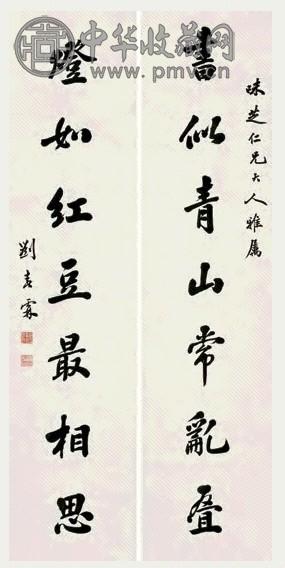 中华收藏网
www.pmv.cn
味芝仁兄大人雅属
書似青山常亂叠
燈如红豆最相思
劉春霖